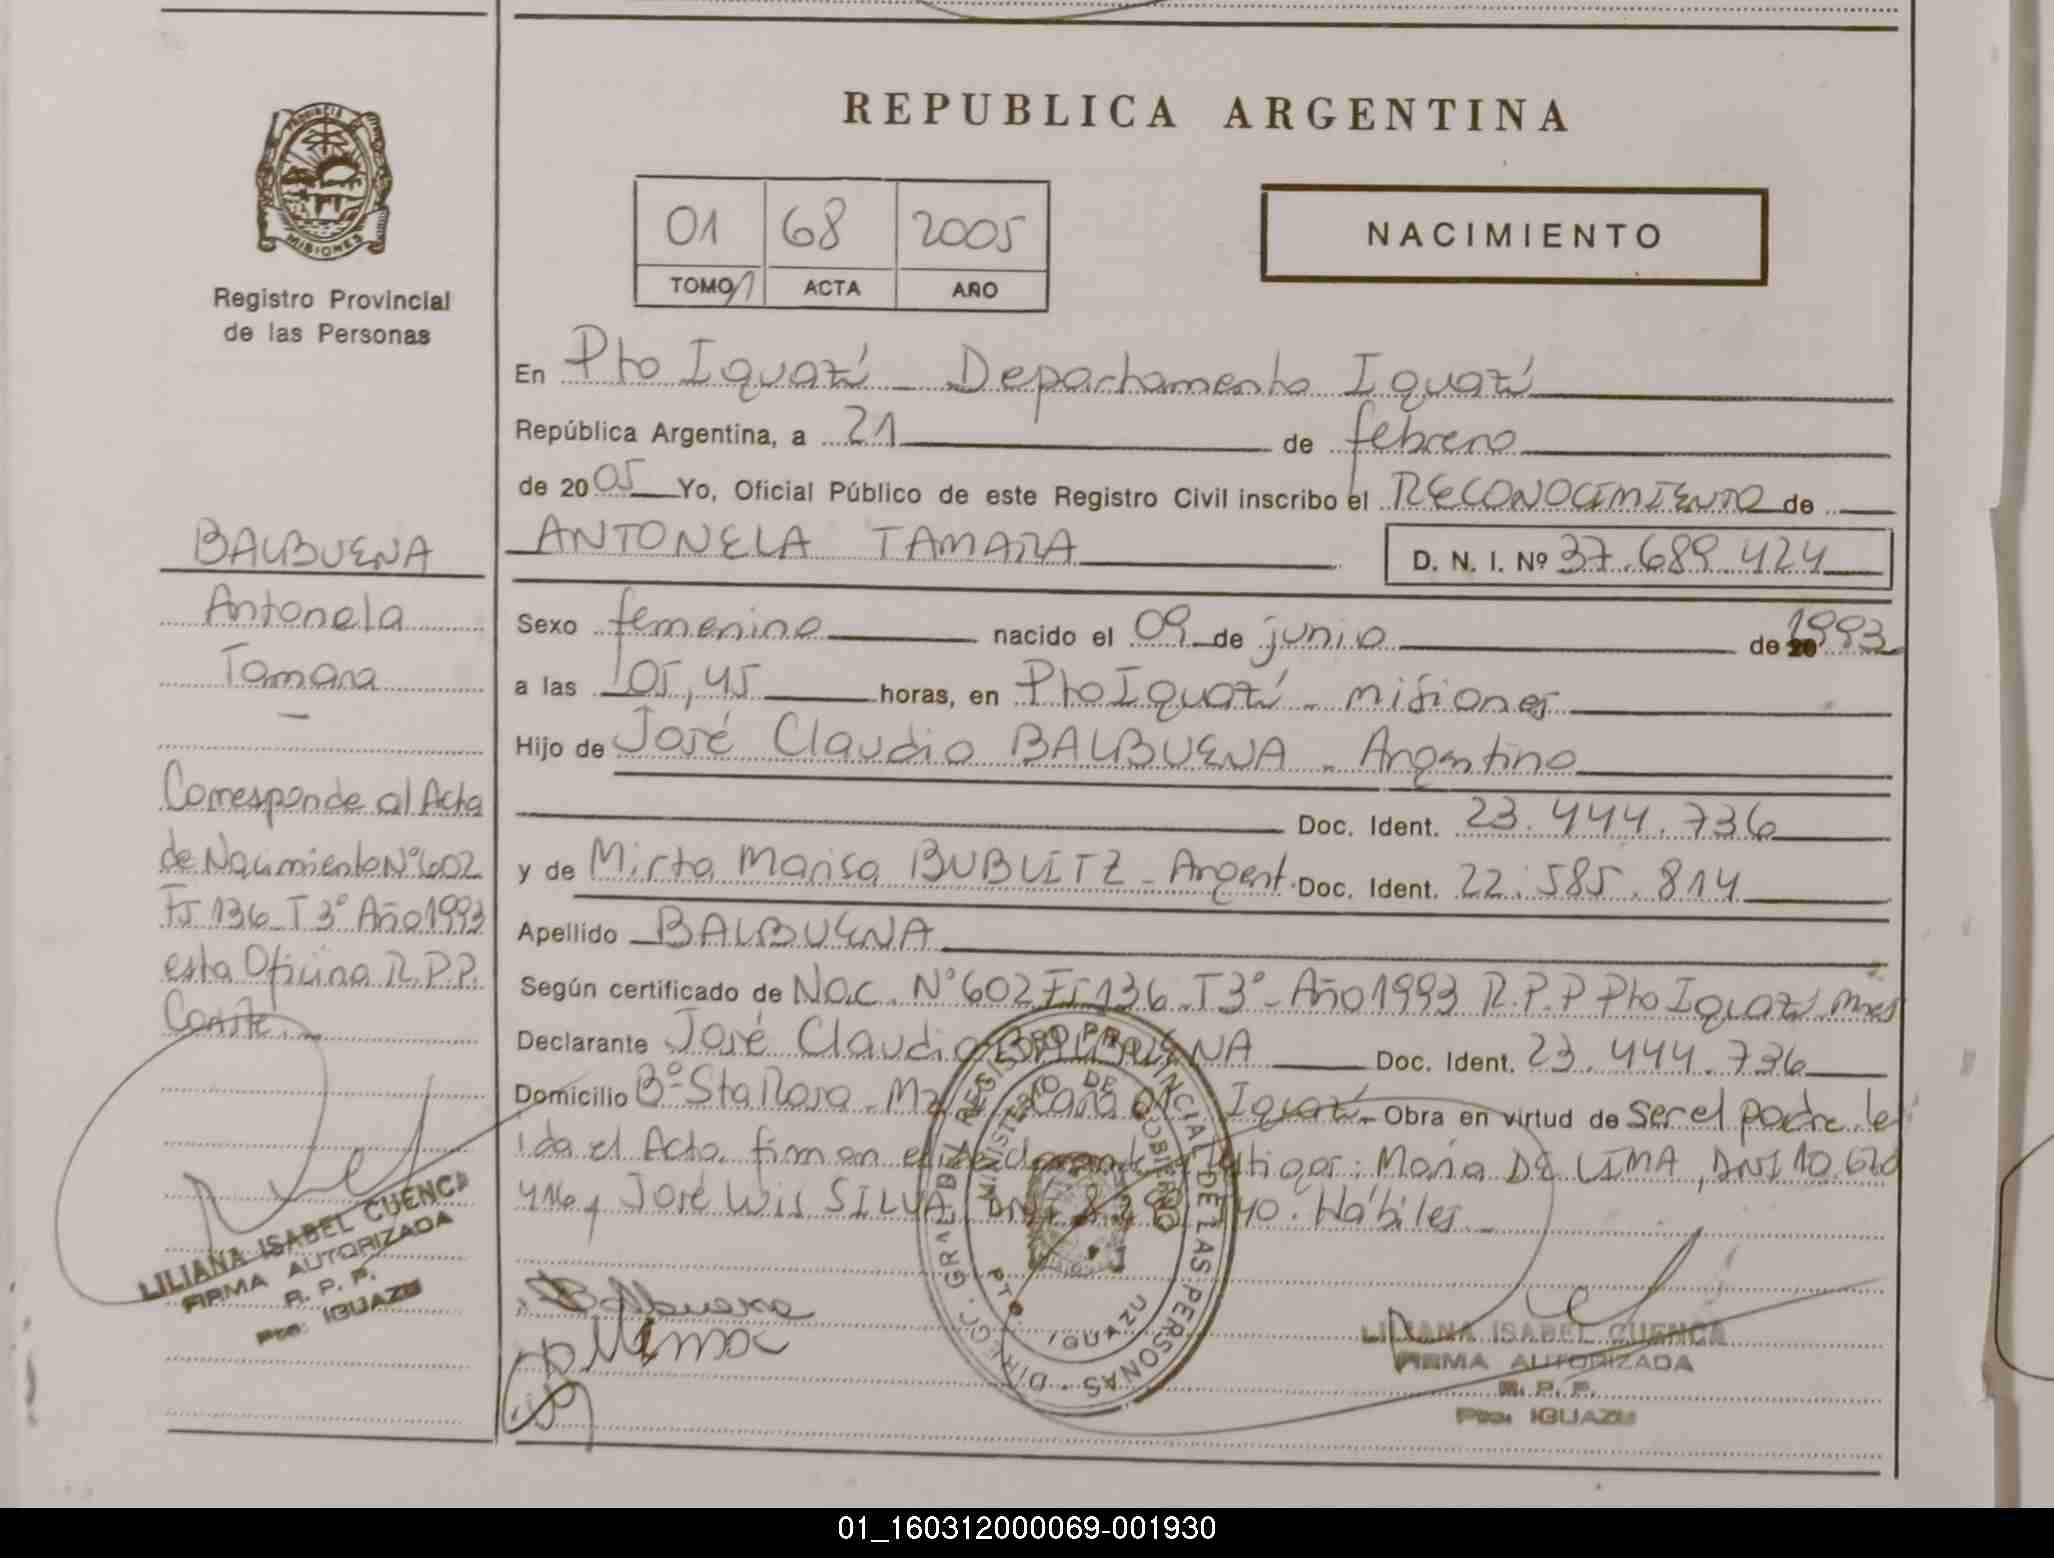 REPUBLICA ARGENTINA
PROVINCIA DE
MISIONES
Registro Provincial
de las Personas
01 68 2005
TOMO 1 ACTA AÑO
NACIMIENTO
En Pto Iguazú - Departamento Iguazú
República Argentina, a 21 de febrero
de 2005 Yo, Oficial Público de este Registro Civil inscribo el RECONOCIMIENTO de
ANTONELA TAMARA D. N. I. Nº 37.689.424
Sexo femenino nacido el 09 de junio de 1993
a las 05,45 horas, en Pto Iguazú - Misiones
Hijo de José Claudio BALBUENA - Argentino
Doc. Ident. 23.444.736
y de Mirta Marisa BUBLITZ - Argent. Doc. Ident. 22.585.814
Apellido BALBUENA
Según certificado de Nac. Nº 602 Fº 136 - T 3º - Año 1993 R.P.P Pto Iguazú - Mnes
Declarante José Claudio BALBUENA Doc. Ident. 23.444.736
Domicilio Bº Sta Rosa - Mz Iguazú - Obra en virtud de ser el padre. le
ida el Acta firman el declarante testigos: María DE LIMA, DNI 10.670
416 y José Luis SILVA, DNI 40. Hábiles -
BALBUENA
Antonela
Tamara
-
Corresponde al Acta
de Nacimiento Nº 602
Fº 136 - T 3º Año 1993
esta Oficina R.P.P.
Conste. -
LILIANA ISABEL CUENCA
FIRMA AUTORIZADA
R. P. P.
Pto. IGUAZU
DIREC. GRAL. DEL REGISTRO PROVINCIAL DE LAS PERSONAS
MINISTERIO DE GOBIERNO
PTO. IGUAZU
LILIANA ISABEL CUENCA
FIRMA AUTORIZADA
R. P. P.
Pto. IGUAZU
01_160312000069-001930